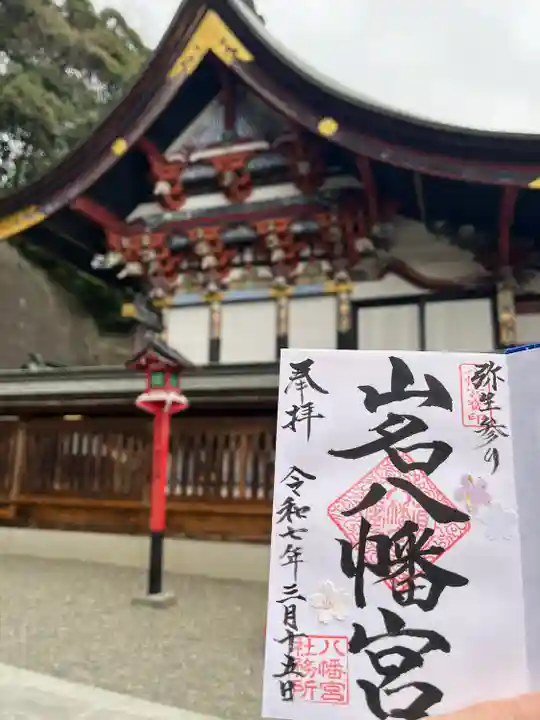 弥生参り
山名八幡宮
奉拝
令和七年三月十五日
八幡宮
社務所